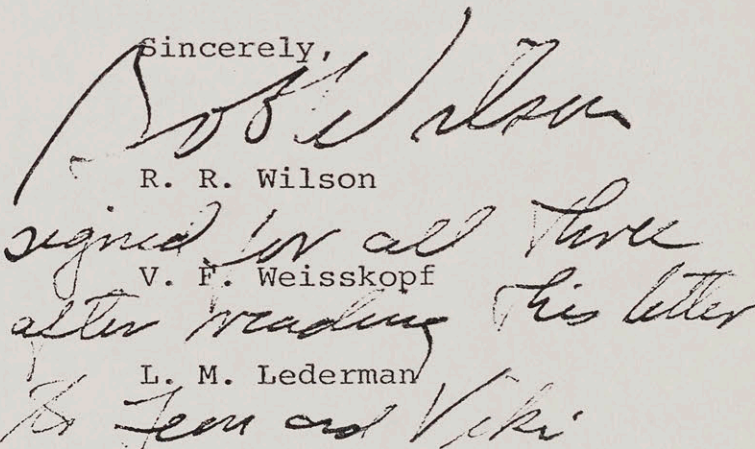 Sincerely,
Bob Wilson
R. R. Wilson
signed for all three
V. F. Weisskopf
after reading this letter
L. M. Lederman
to Leon and Viki